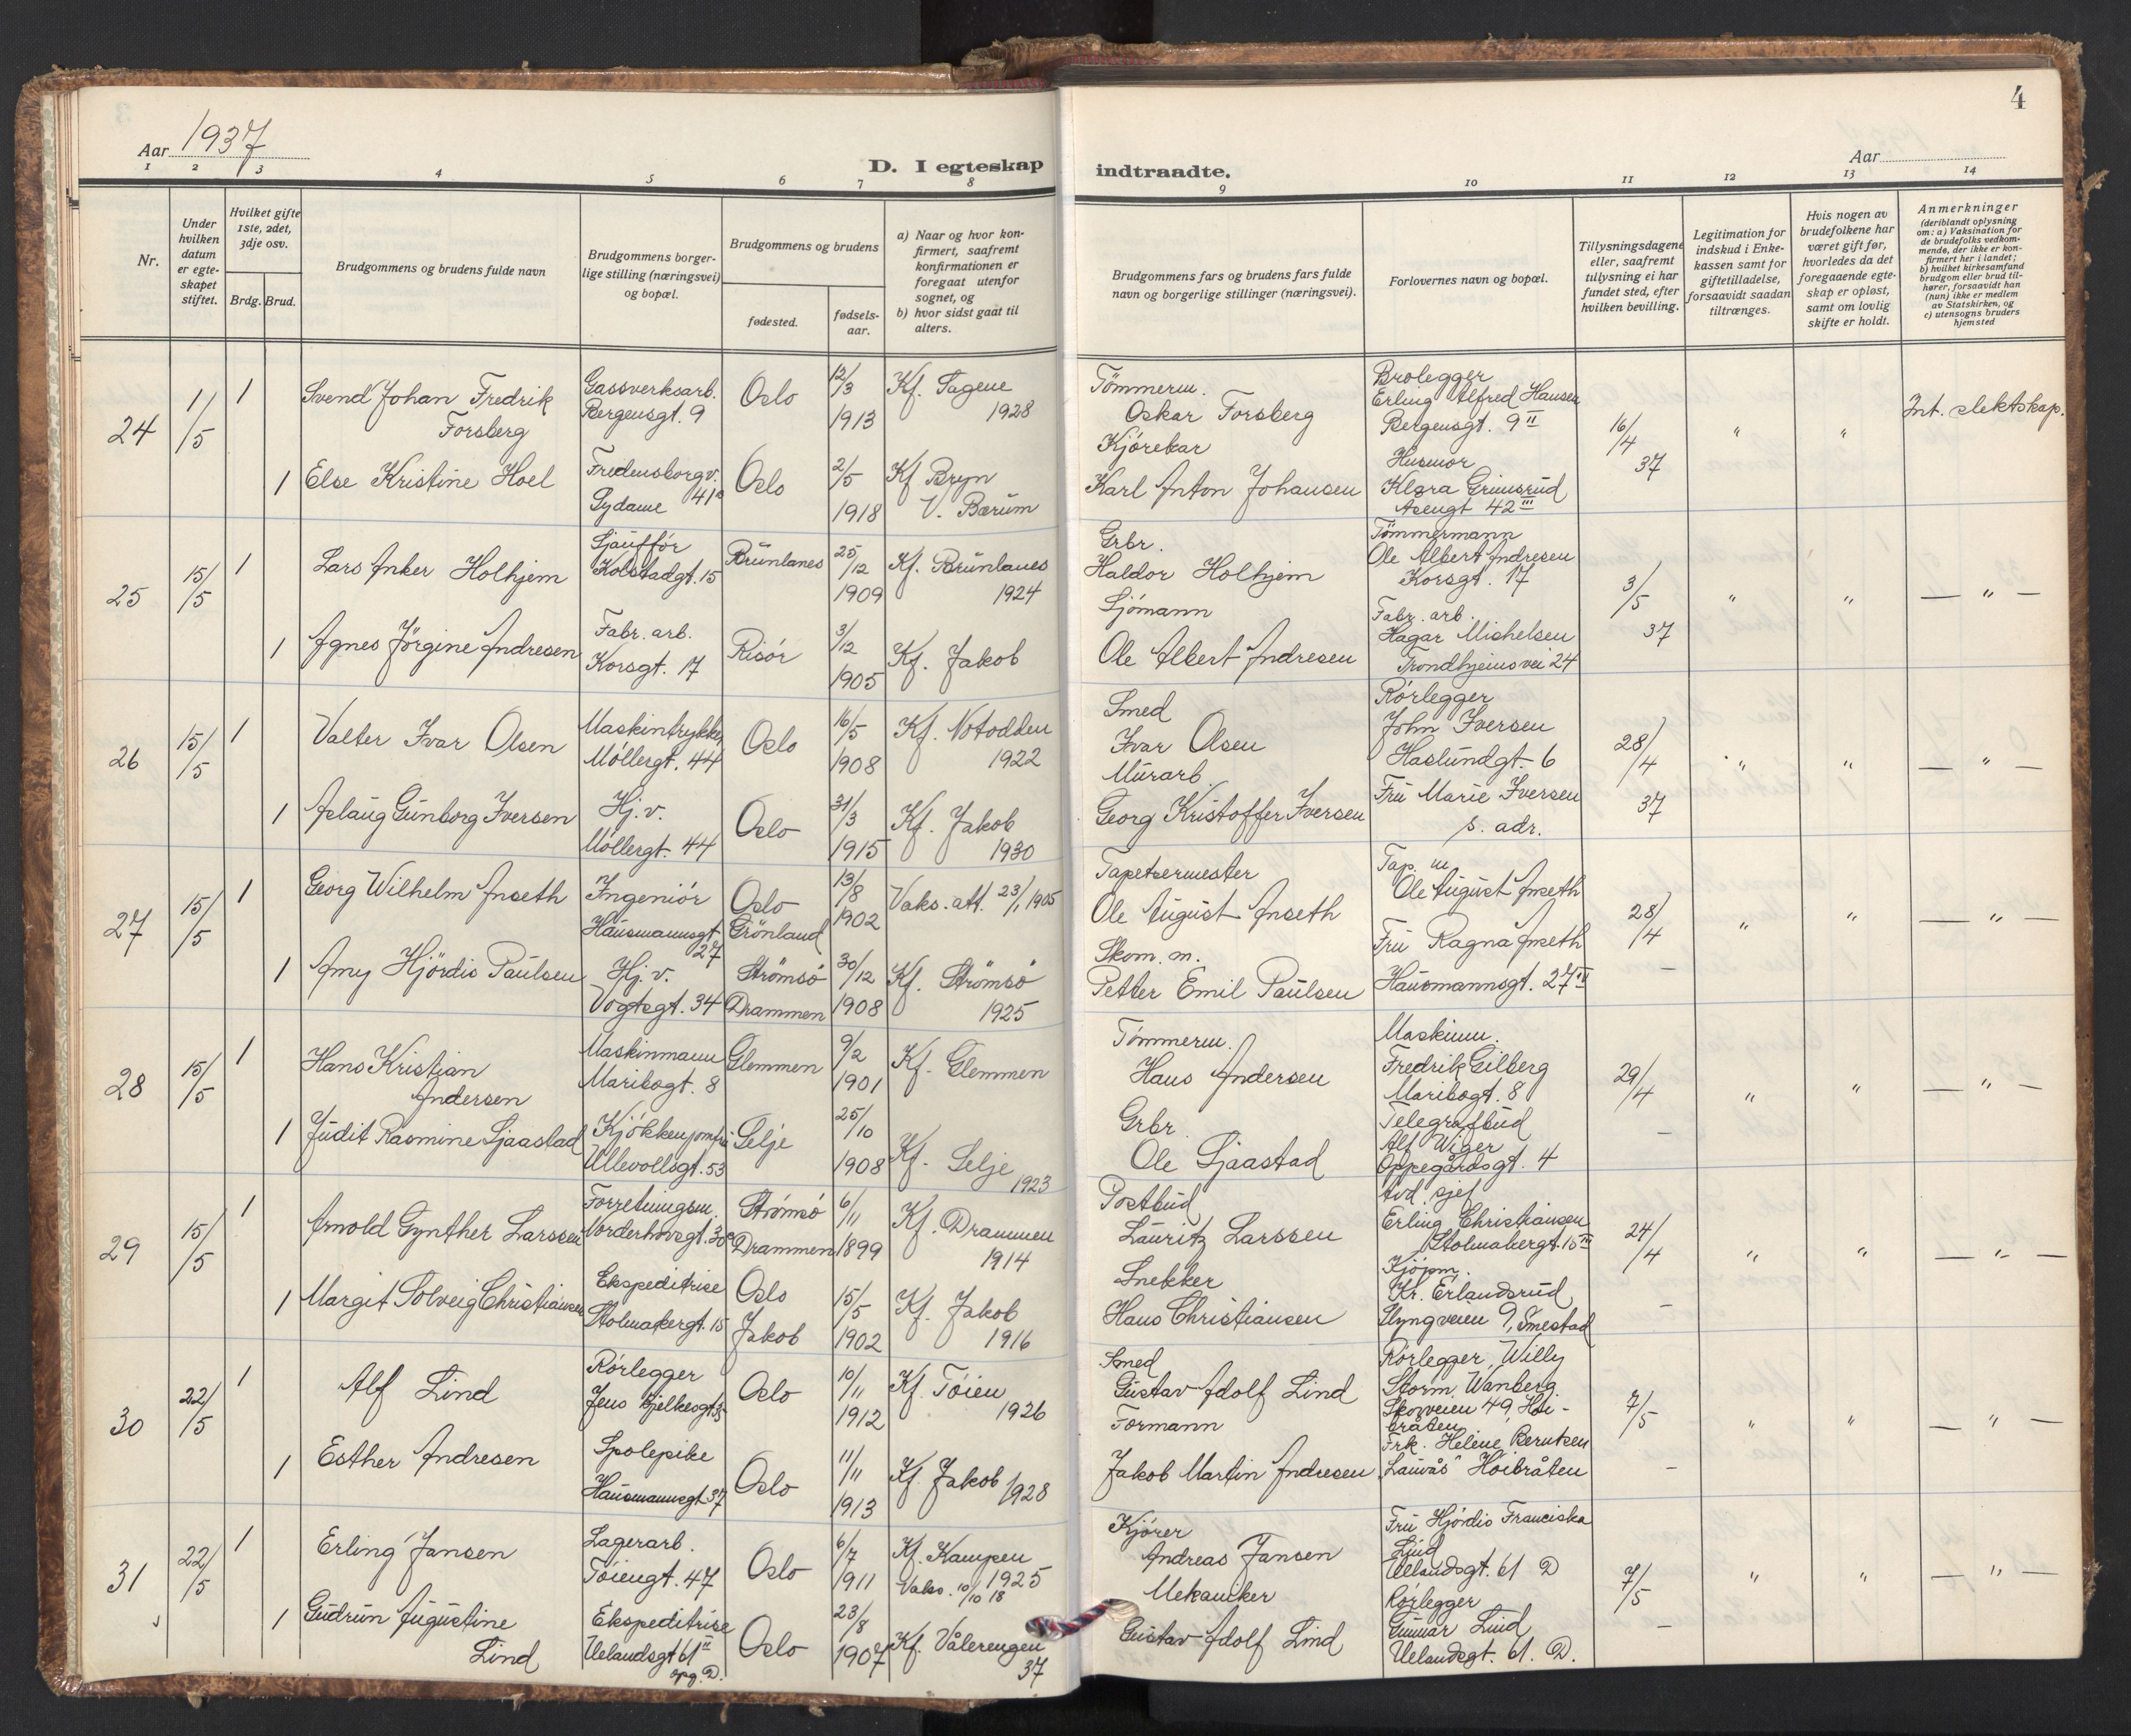 4
Aar 1937
D. I egteskap indtraadte.
Aar
1 2 3 4 5 6 7 8 9 10 11 12 13 14
Nr.
Under hvilken datum er egteskapet stiftet.
Hvilket gifte 1ste, 2det, 3dje osv.
Brdg. Brud.
Brudgommens og brudens fulde navn
Brudgommens borgerlige stilling (næringsvei) og bopæl.
Brudgommens og brudens
fødested.
fødselsaar.
a) Naar og hvor konfirmert, saafremt konfirmationen er foregaat utenfor sognet, og
b) hvor sidst gaat til alters.
Brudgommens fars og brudens fars fulde navn og borgerlige stillinger (næringsvei).
Forlovernes navn og bopæl.
Tillysningsdagene eller, saafremt tillysning ei har fundet sted, efter hvilken bevilling.
Legitimation for indskud i Enkekassen samt for giftetilladelse, forsaavidt saadan tiltrænges.
Hvis nogen av brudefolkene har været gift før, hvorledes da det foregaaende egteskap er opløst, samt om lovlig skifte er holdt.
Anmerkninger
(deriblandt oplysning om: a) Vaksination for de brudefolks vedkommende, der ikke er konfirmert her i landet;
b) hvilket kirkesamfund brudgom eller brud tilhører, forsaavidt han (hun) ikke er medlem av Statskirken, og
c) utensogns bruders hjemsted
24 1/5 1 Svend Johan Fredrik Forsberg Gassverksarb. Bergensgt. 9 Oslo 12/3 1913 Kf. Sagene 1928 Tömmerm. Oskar Forsberg Brolegger Erling Alfred Hansen Bergensgt. 9 II 16/4 37 " " Int. slektskap.
1 Else Kristine Hoel Fredensborgv. 41 Sydame Oslo 2/5 1918 Kf Bryn V. Bærum Kjörekar Karl Anton Johansen Husmor Klara Grimsrud Asengt 42 III
25 15/5 1 Lars Anker Holhjem Sjauffør Kolstadgt. 15 Brunlanes 25/12 1909 Kf. Brunlanes 1924 Grbr. Haldor Holhjem Tömmermann Ole Albert Andresen Korsgt. 17 3/5 37 " " — " —
1 Agnes Jörgine Andresen Fabr. arb. Korsgt. 17 Risör 3/12 1905 Kf. Jakob Sjömann Ole Albert Andresen Fabr. arb. Hagar Michelsen Trondhjemsvei 24
26 15/5 1 Valter Ivar Olsen Maskintrykker Möllergt. 44 Oslo 16/5 1908 Kf. Notodden 1922 Smed Ivar Olsen Rörlegger John Iversen Haslundgt. 6 28/4 37 " " — " —
1 Aslaug Gunborg Iversen Hj. v. Möllergt. 44 Oslo 31/3 1915 Kf. Jakob 1930 Murarb. Georg Kristoffer Iversen Fru Marie Iversen s. adr.
27 15/5 1 Georg Wilhelm Anseth Ingeniör Hausmannsgt 27 Oslo Grönland 13/8 1902 Vaks. att. 23/1 1905 Tapetsermester Ole August Anseth Tap. m Ole August Anseth 28/4 " " — " —
1 Amy Hjördis Paulsen Hj. v. Vogtsgt. 34 Strömsö Drammen 30/12 1908 Kf. Strömsö 1925 Skom. m. Petter Emil Paulsen Fru Ragna Anseth Hausmannsgt. 27 II —
28 15/5 1 Hans Kristian Andersen Maskinmann Maribogt. 8 Glemmen 9/2 1901 Kf. Glemmen Tömmerm. Hans Andersen Maskinm. Fredrik Gilberg Maribogt. 8 29/4 " " — " —
1 Judit Rasmine Sjaastad Kjökkenjomfru Ullevollsgt. 53 Selje 25/10 1908 Kf. Selje 1923 Grbr. Ole Sjaastad Telegrafbud Alf Wiger Oppegårdsgt. 4 —
29 15/5 1 Arnold Gynther Larssen Forretningsm. Norderhovsgt. 30 Strömsö Drammen 6/11 1899 Kf. Drammen 1914 Postbud Lauritz Larssen Avd. sjef Erling Christiansen Stolmakergt. 15 III 24/4 " " — " —
1 Margit Solveig Christiansen Ekspeditrise Stolmakergt. 15 Oslo Jakob 15/5 1902 Kf. Jakob 1916 Snekker Hans Christiansen Kjöpm. Kr. Erlandsrud Ulyngveien 9, Smestad —
30 22/5 1 Alf Lind Rörlegger Jens Bjelkesgt 35 Oslo 10/11 1912 Kf. Töien 1926 Smed Gustav Adolf Lind Rörlegger, Willy Storm Wanberg. Skovveien 49, Höibråten 7/5 " " — " —
1 Esther Andresen Spolepike Hausmannsgt 37 Oslo 11/11 1913 Kf. Jakob 1928 Formann Jakob Martin Andresen Frk. Helene Berntsen "Lauvås" Höibråten —
31 22/5 1 Erling Jansen Lagerarb. Töiengt. 47 Oslo 6/7 1911 Kf. Kampen 1925 Vaks. 10/10 18 Kjörer Andreas Jansen Fru Hjördis Franciska Lind Uelandsgt. 61 D 7/5 " " — " —
1 Gudrun Augustine Lind Ekspeditrise Uelandsgt 61 II opg. D. Oslo 23/8 1907 Kf. Vålerengen 37 Mekaniker Gustav Adolf Lind Rörlegger Gunnar Lind Uelandsgt. 61. D. —